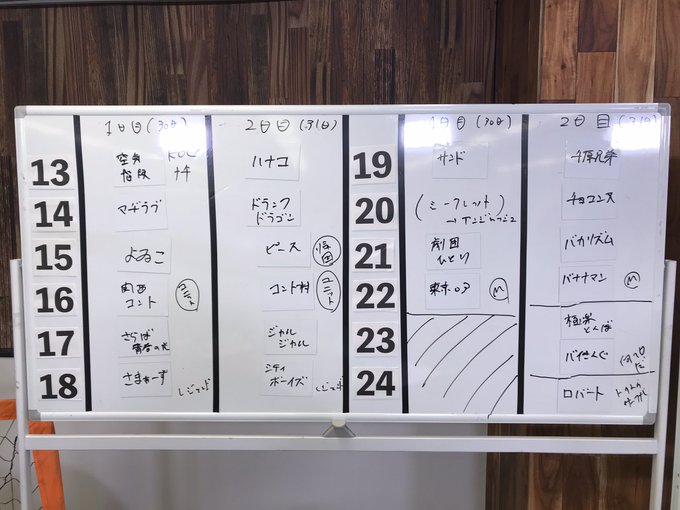 1日目(30日)
2日目(31日)
1日目(30日)
2日目(31日)
13
空気
階段
ハナコ
19
サンド
千原兄弟
14
マヂラブ
ドランク
ドラゴン
20
(シークレット)
チョコンヌ
15
よゐこ
ピース
21
劇団
ひとり
バカリズム
16
関西
コント
ユニット
コント村
ユニット
22
東京03
M
バナナマン
M
17
さらば
青春の光
ジャル
ジャル
23
極楽
とんぼ
バイきんぐ
18
さまぁ~ず
レジェンド
シティ
ボーイズ
レジェンド
24
ロバート